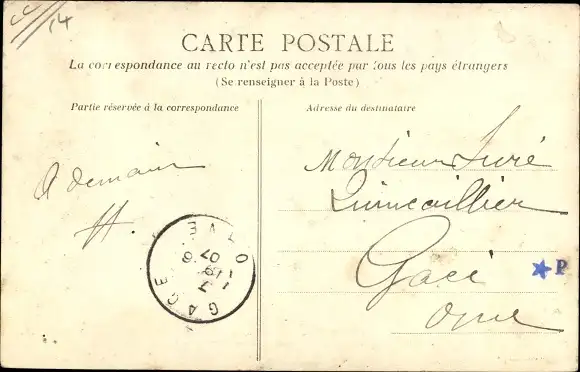 CARTE POSTALE
La correspondance au recto n'est pas acceptée par tous les pays étrangers
(Se renseigner à la Poste)
Partie réservée à la correspondance
Adresse du destinataire
A demain
H.
Monsieur Livré
Quincaillier
Gacé
Orne
GACE
ORNE
07
P